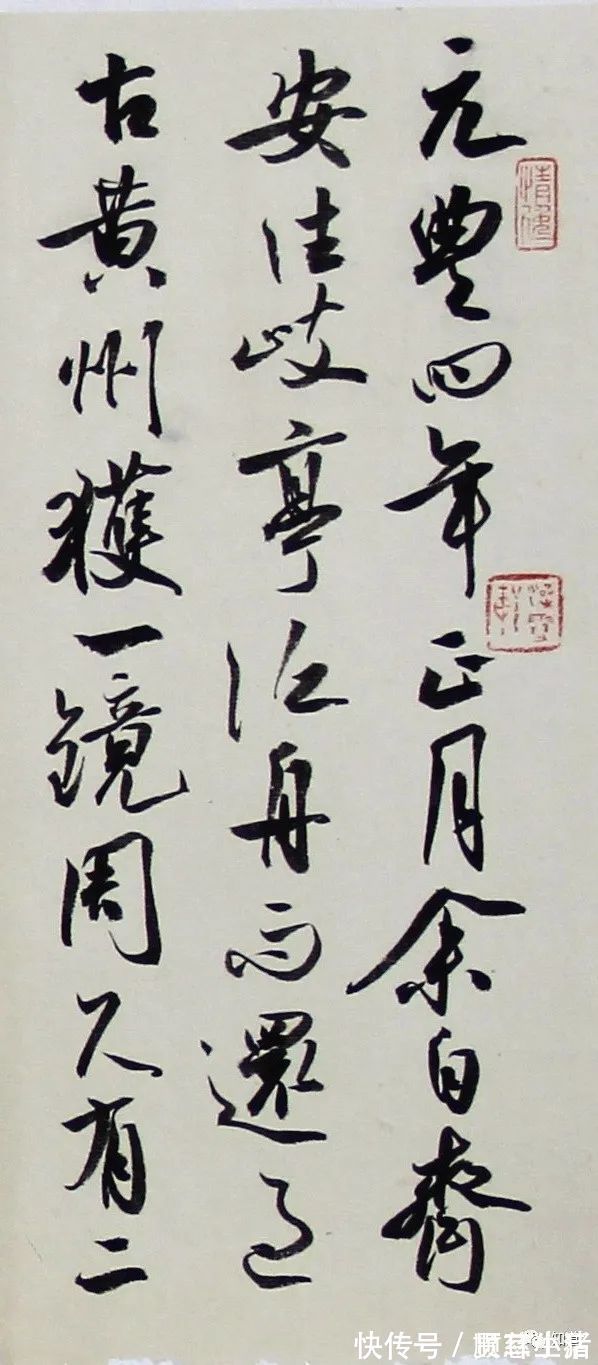 元豐四年正月余自齊
安往岐亭泛舟而還過
古黄州獲一鏡周尺有二
快传号/